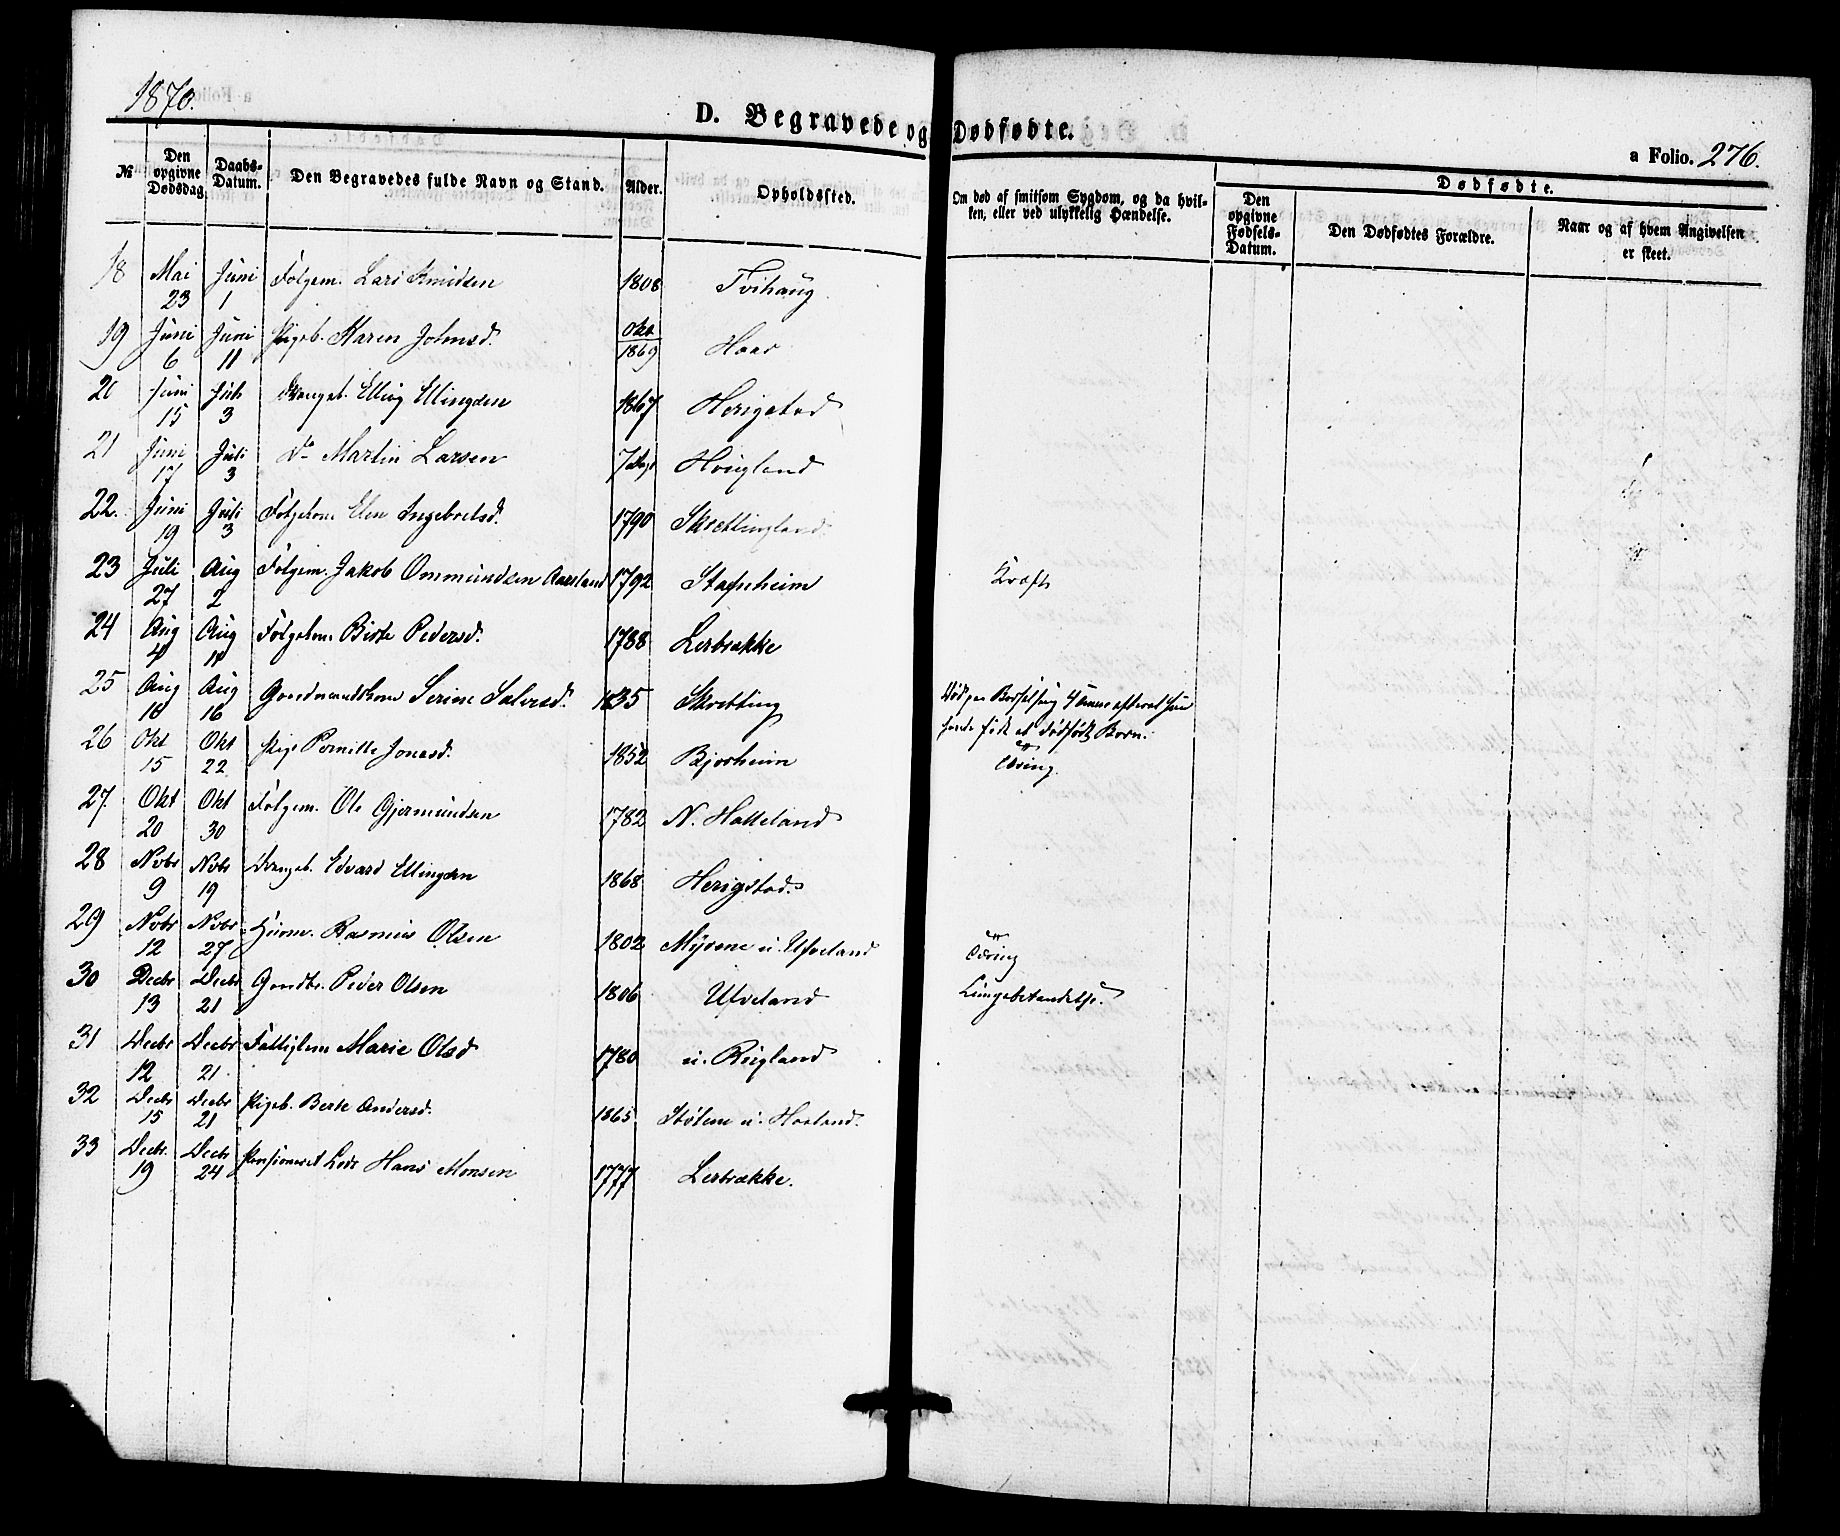 1870.
D. Begravede og Dødfødte.
a Folio. 276.
№ Den opgivne Dødsdag. Daabs-Datum. Den Begravedes fulde Navn og Stand. Alder. Opholdssted. Om død af smitsom Sygdom, og da hvilken, eller ved ulykkelig Hændelse. Dødfødte. Den opgivne Fødsels-Datum. Den Dødfødtes Forældre. Naar og af hvem Angivelsen er skeet.
18 Mai 23 Juni 1 Følgem. Lars Knudsen 1808 Tvihaug
19 Juni 6 Juni 11 Pigeb. Karen Johnsd. Okt 1869 Haar
20 Juni 15 Juli 3 Drengeb. Elling Ellingsen 1867 Herigstad
21 Juni 17 Juli 3 do Martin Larsen 7 Dage Houghland
22. Juni 19 Juli 3 Følgekone Elen Ingebretsd. 1790 Skrettingland
23 Juli 27 Aug 2 Følgem. Jakob Ommundsen Aarsland 1792 Stafnheim Kræft
24 Aug 4 Aug 11 Følgekone Birte Pedersd. 1788 Lerbrække
25 Aug 10 Aug 16 Gaardmandskone Serine Salvesd. 1835 Skretting Død paa Barselseng 4 Uger efterat hun havde født et dødfødt Barn.
26 Okt 15 Okt 22 Pige Pernille Jonasd. 1852 Bjorheim Tæring.
27 Okt 20 Okt 30 Følgem. Ole Gjermundsen 1782 N. Hatteland
28 Novbr 9 Novbr 19 Drengeb. Edvard Ellingsen 1868 Herigstad.
29 Novbr 12 Novbr 27 Huusm. Rasmus Olsen 1802 Myrene u. Ufveland Tæring
30 Decbr 13 Decbr 21 Gaardbr. Peder Olsen 1806 Ufveland Lungebetændelse.
31 Decbr 12 Decbr 21. Fattiglem Marie Olsd 1780 u. Røgland
32 Decbr 15 Decbr 21 Pigeb. Berte Andersd. 1865 Stølene u. Haaland.
33 Decbr. 19 Decbr 24 Pensioneret Lods Hans Monsen 1777 Lerbrække.